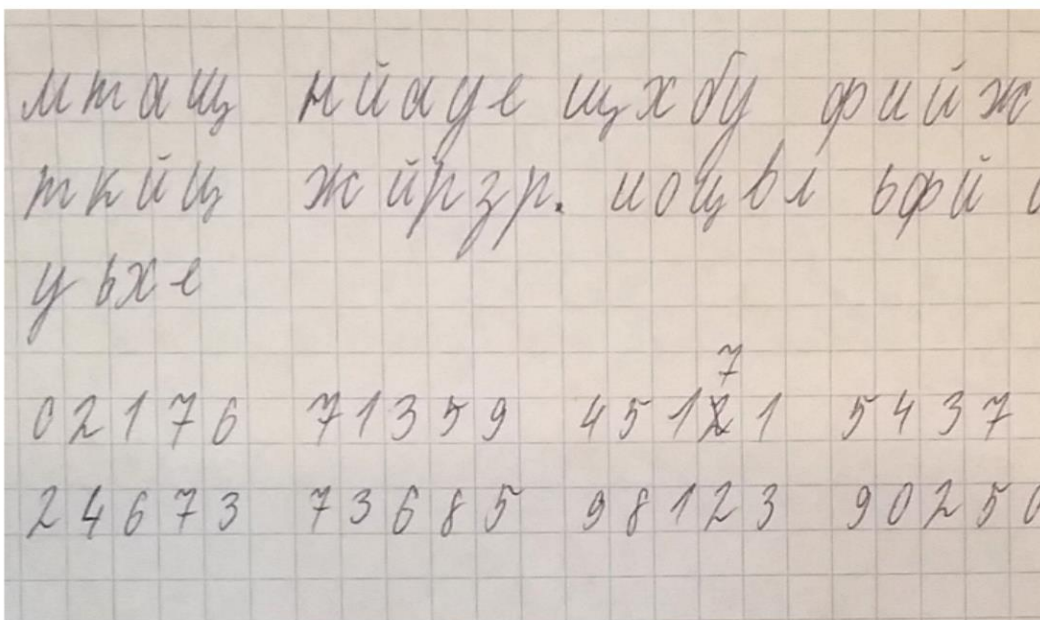 мтащ нйаде щхбу фийж
ткйц жйрзр. иощвл ьфй
уьхе
7
02176 71359 45121 5437
24673 73685 98123 9025